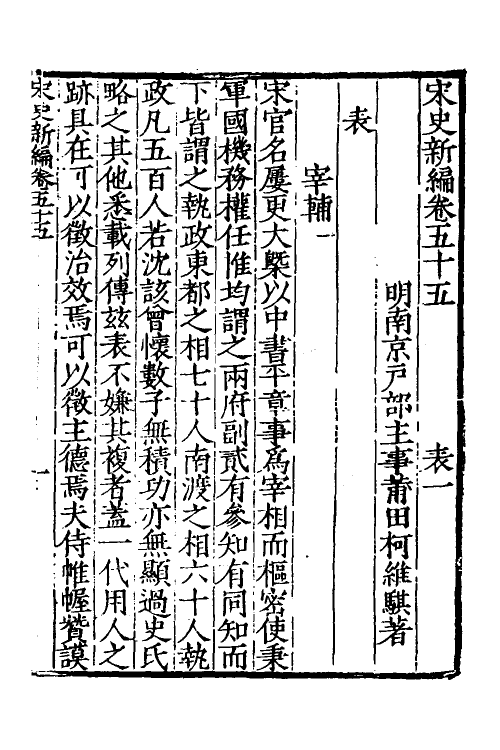 宋史新編卷五十五 表一
明南京戶部主事莆田柯維騏著
表
宰輔一
宋官名屢更大槩以中書平章事爲宰相而樞密使秉
軍國機務權任惟均謂之兩府副貳有參知有同知而
下皆謂之執政東都之相七十人南渡之相六十人執
政凡五百人若沈該曾懷數子無積功亦無顯過史氏
略之其他悉載列傳茲表不嫌其複者蓋一代用人之
跡具在可以徵治效焉可以徵主德焉夫侍帷幄贊謨
宋史新編卷五十五 一